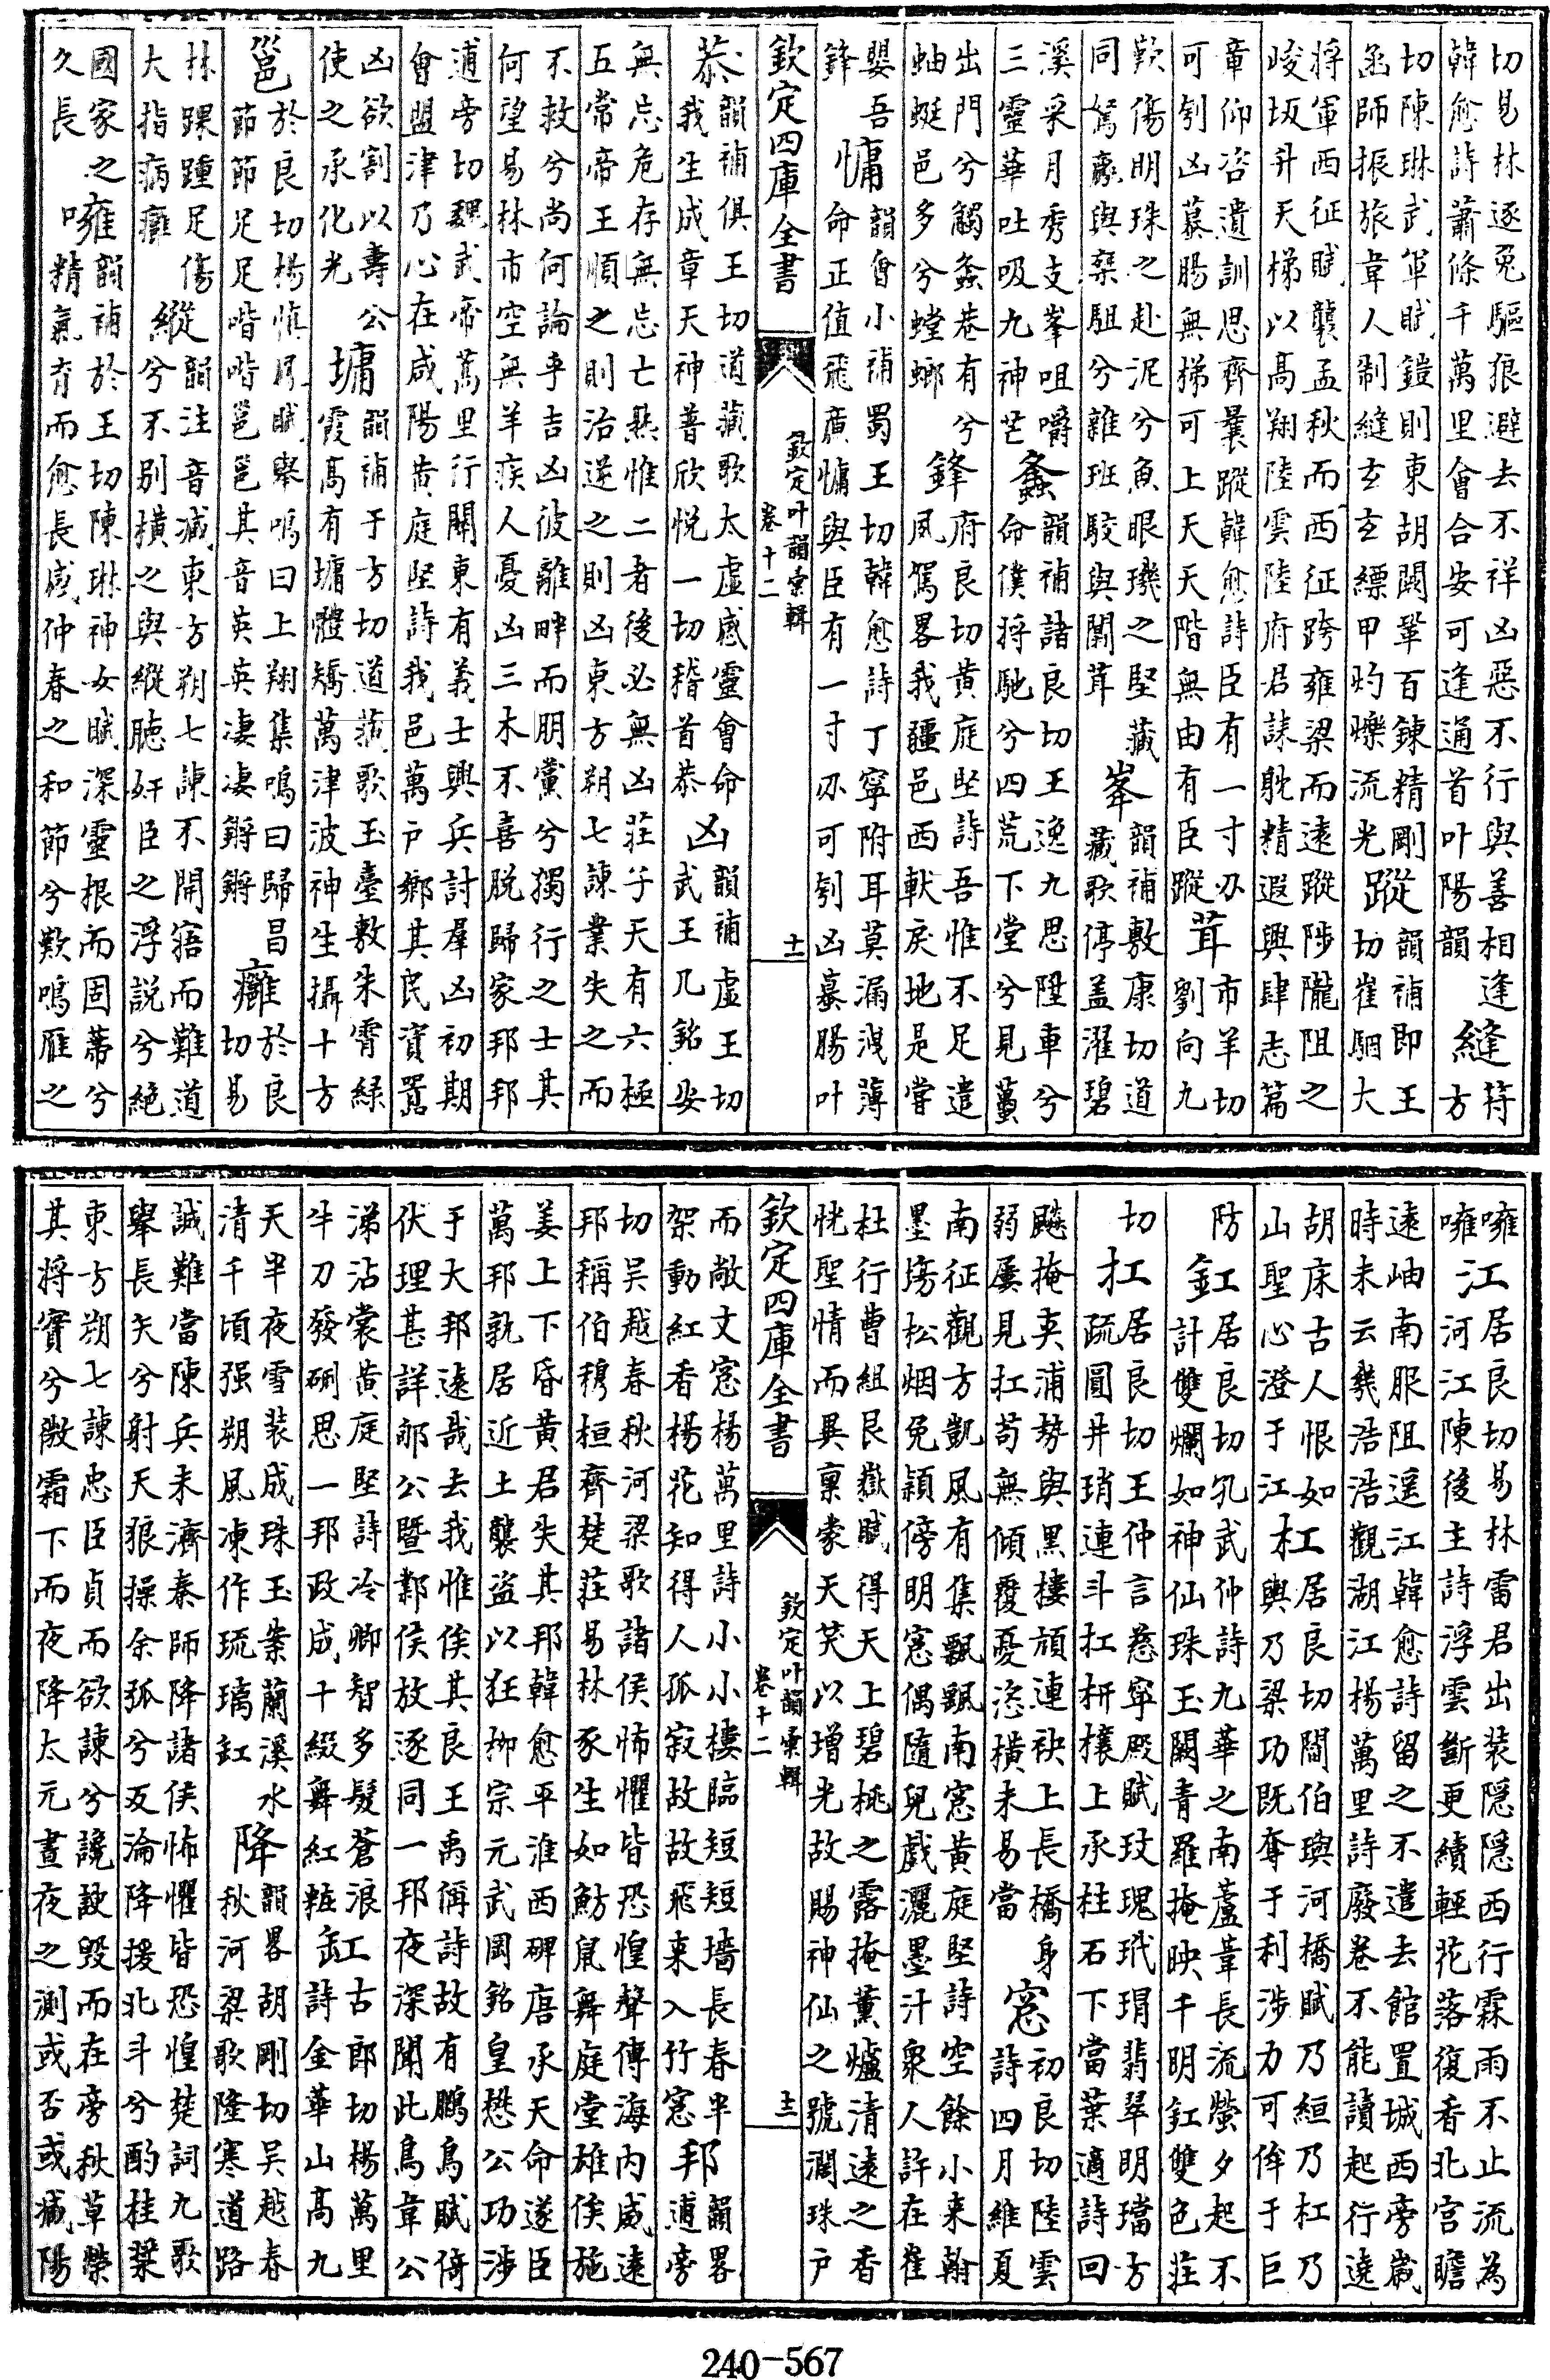 切易林逐兎驅狼避去不祥凶惡不行與善相逢
韓愈詩蕭條千萬里會合安可逢通首叶陽韻
縫符
方
切陳琳武軍賦鎧則東胡闕鞏百鍊精剛
函師振旅韋人制縫玄玄縹甲灼爍流光
蹤韻補即王
切崔駰大
將軍西征賦襲孟秋而西征跨雍梁而遠蹤陟隴阻之
峻坂升天梯以高翔陸雲陸府君誄躭精遐興肆志篇
章仰咨遺訓思齊曩蹤韓愈詩臣有一寸刃
可刳凶蟇腸無梯可上天天階無由有臣蹤
茸市羊切
劉向九
歎傷明珠之赴泥兮魚眼璣之堅藏
同駑驘與椉駔兮雜班駮與闒茸
峯韻補敷康切道
藏歌停盖濯碧
溪采月秀支峯咀嚼
三靈華吐吸九神芒
螽韻補諸良切王逸九思陞車兮
命僕將馳兮四荒下堂兮見蠆
出門兮觸螽巷有兮
蚰蜒邑多兮螳螂
鋒府良切黄庭堅詩吾惟不足遣
夙駕畧我疆邑西軷戾地是嘗
嬰吾
鋒
慵韻會小補蜀王切韓愈詩丁寧附耳莫漏洩薄
命正值飛廣慵與臣有一寸刃可刳凶蟇腸叶
欽定四庫全書
欽定叶韻彚輯
卷十二
十一
恭韻補俱王切道藏歌太虚感靈會命
我生成章天神普欣悦一切稽首恭
凶韻補虛王切
武王几銘安
無忘危存無忘亡熟惟二者後必無凶荘子天有六極
五常帝王順之則治逆之則凶東方朔七諫業失之而
不救兮尚何論乎吉凶彼離畔而朋黨兮獨行之士其
何望易林市空無羊疾人憂凶三木不喜脱歸家邦邦
逋旁切魏武帝蒿里行關東有義士興兵討羣凶初期
會盟津乃心在咸陽黄庭堅詩我邑萬户鄉其民資嚚
凶欲割以壽公
使之承化光
墉韻補于方切道藏歌玉臺敷朱霄綠
霞高有墉體矯萬津波神生攝十方
邕於良切楊慎鳳賦舉鳴曰上翔集鳴曰歸昌
節節足足喈喈邕邕其音英英凄凄鏘鏘
癰於良
切易
林踝踵足傷
大指病癰
縱韻注音臧東方朔七諫不開寤而難道
兮不别横之與縱聽奸臣之浮説兮絶
國家之
久長
噰韻補於王切陳琳神女賦深靈根而固蔕兮
精氣育而愈長感仲春之和節兮歎鳴雁之
噰
噰
江居良切易林雷君出装隠隠西行霖雨不止流為
河江陳後主詩浮雲斷更續輕花落復香北宫瞻
遠岫南服阻遥江韓愈詩留之不遣去館置城西旁嵗
時未云幾浩浩觀湖江楊萬里詩廢卷不能讀起行遶
胡床古人恨如
山聖心澄于江
杠居良切閻伯璵河橋賦乃絙乃杠乃
輿乃梁功既奪于利涉力可侔于巨
防
釭居良切孔武仲詩九華之南蘆葦長流螢夕起不
計雙爛如神仙珠玉闕青羅掩映千明釭雙色荘
切
扛居良切王仲言慈寧殿賦玟瑰玳瑁翡翠明璫方
疏圓井瑣連斗扛枅欀上承柱石下當葉適詩回
飈掩耎浦勢與黑樓頑連袂上長橋身
弱屢見扛苟無傾覆憂恣横未易當
窓初良切陸雲
詩四月維夏
南征觀方凱風有集飄飄南窓黄庭堅詩空餘小来翰
墨塲松烟兔頴傍明窓偶隨兒戲灑墨汁衆人許在崔
杜行曹組艮嶽賦得天上碧桃之露掩薰爐清遠之香
恍聖情而異禀蒙天笑以增光故賜神仙之號濶珠户
欽定四庫全書
欽定叶韻彚輯
卷十二
十二
而敞文窓楊萬里詩小小樓臨短短墻長春半
架動紅香楊花知得人孤寂故故飛来入竹窓
邦韻畧
逋旁
切吴越春秋河梁歌諸侯怖懼皆恐惶聲傳海内威遠
邦稱伯穆桓齊楚荘易林豕生如魴鼠舞庭堂雄侯施
姜上下昏黄君失其邦韓愈平淮西碑唐承天命遂臣
萬邦孰居近土襲盗以狂栁宗元武岡銘皇懋公功渉
于大邦遠哉去我惟俟其良王禹偁詩故有鵬鳥賦倚
伏理甚詳郇公暨鄴侯放逐同一邦夜深聞此鳥韋公
涕沾裳黄庭堅詩冷卿智多髮蒼浪
牛刀發硎思一邦政成十綴舞紅粧
缸古郎切楊萬里
詩金華山高九
天半夜雪装成珠玉業蘭溪水
清千頃强朔風凍作琉璃缸
降韻畧胡剛切吴越春
秋河梁歌隆寒道路
誠難當陳兵未濟秦師降諸侯怖懼皆恐惶楚詞九歌
舉長矢兮射天狼操余弧兮反淪降援北斗兮酌桂漿
東方朔七諫忠臣貞而欲諫兮讒諛毁而在旁秋草榮
其將實兮微霜下而夜降太元晝夜之測或否或臧陽
240-567